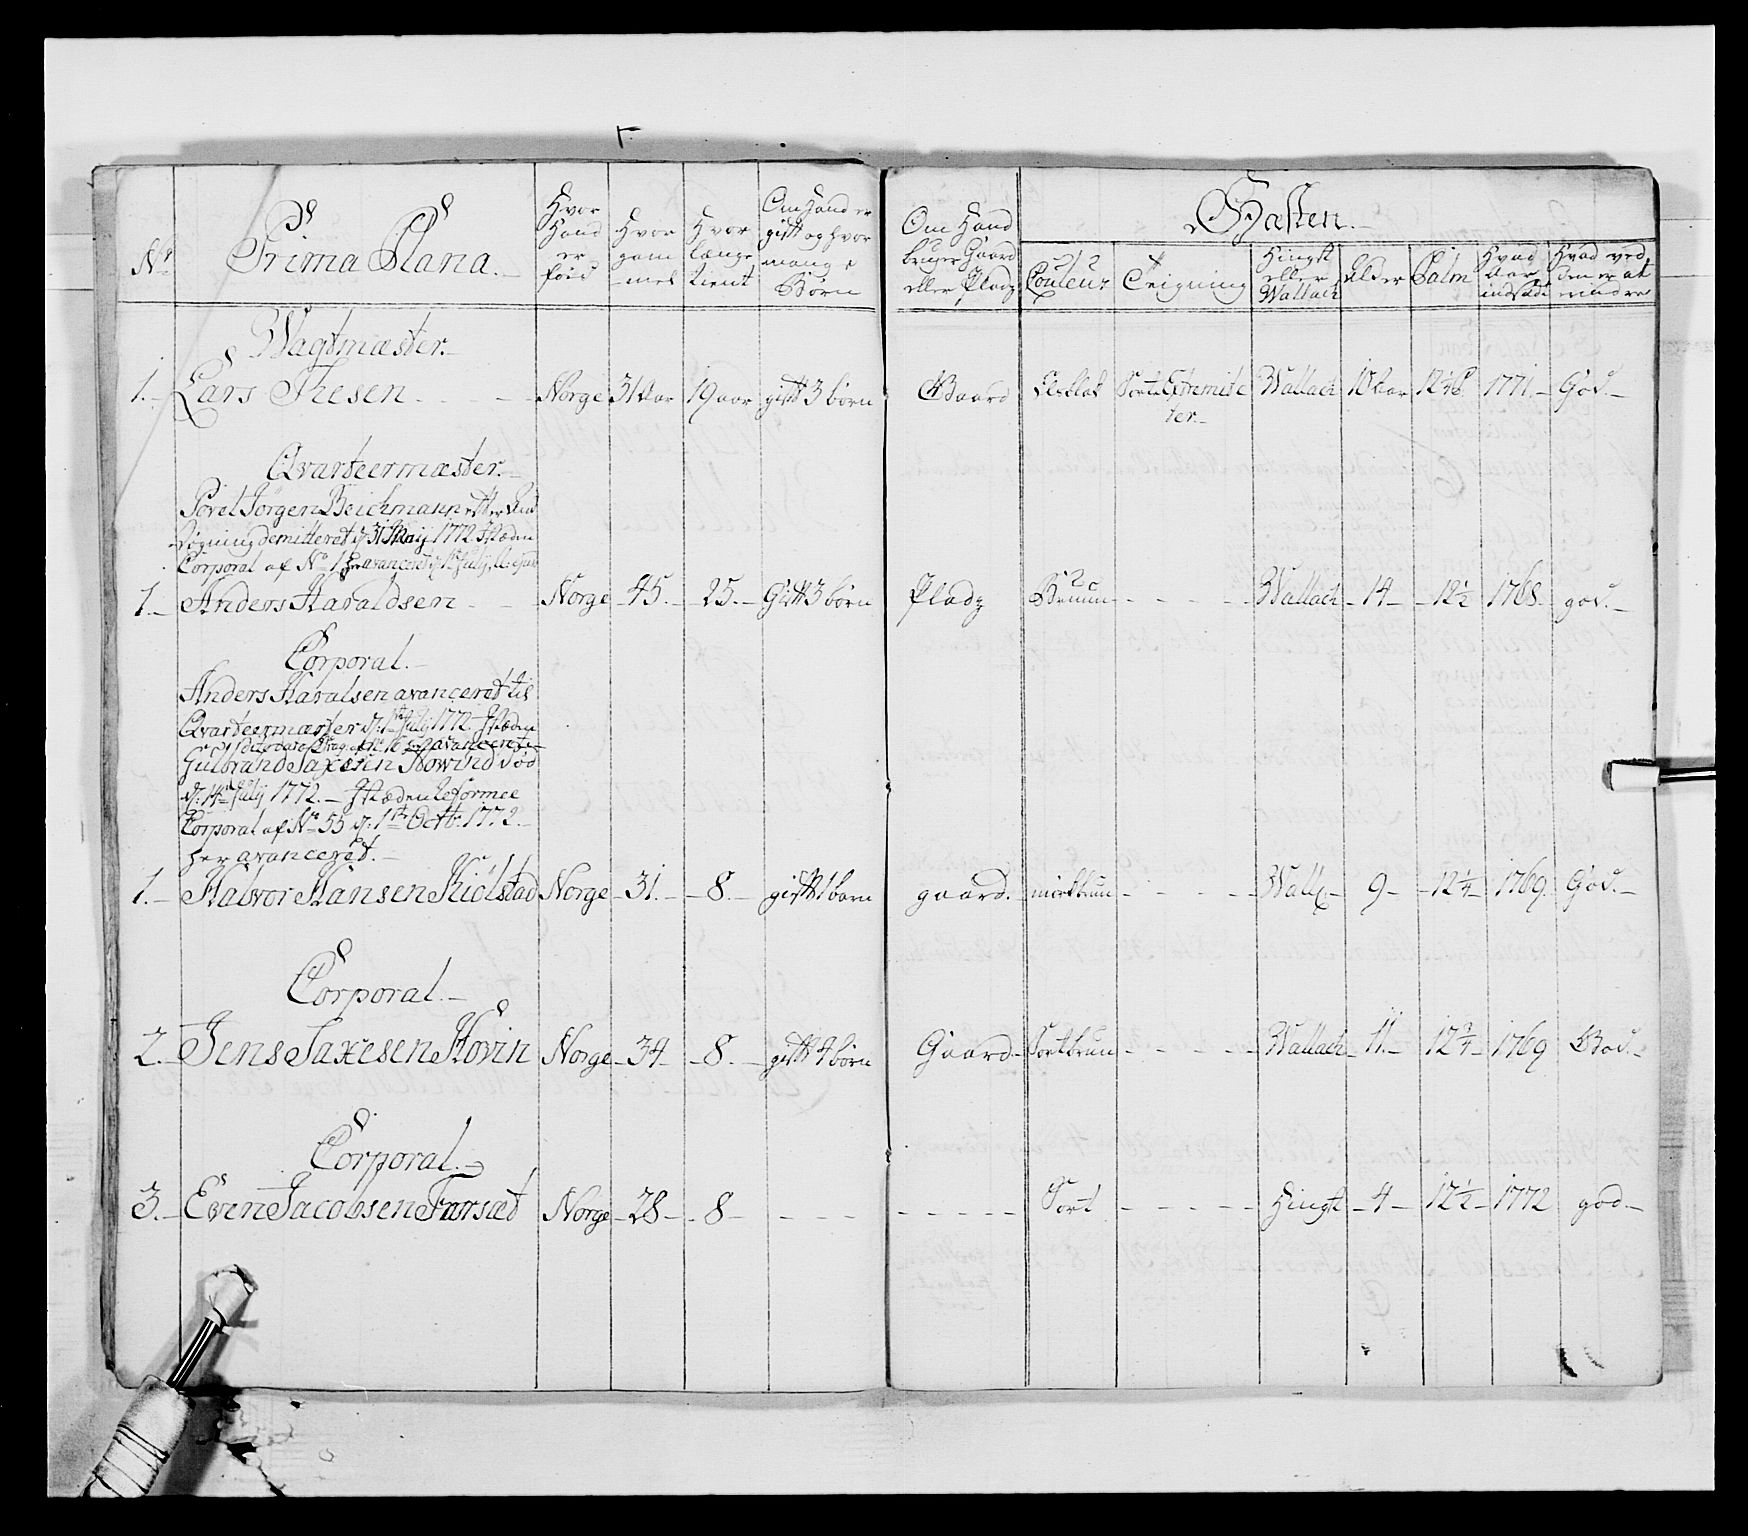 Nº Prima Plana.
Hvor Hand er föed
Hvor gam mel
Hvor længe tient
Om Hand er gift og hvor mange Börn
Om Hand bruger Gaard eller Pladz
Hæsten.
Couleur
Teigning
Hingst eller Wallach
Alder
Palm
Hvad Aar indsadt
Hvad ved den er at erindre
Wagtmæster.
1. Lars Thesen Norge 31 Aar 19 aar gift 3 börn Gaard Sorte Extremite ter. Wallach 10 aar 1771. God.
Qvarteermæster.
Povel Jörgen Beichmann efter An
søgning demitteret d. 31 Maij 1772 I Stæden
Corporal af Nº 1 her avanceret d. 1ste Julij
1. Anders Haraldsen Norge 45. 25. Gift 3 börn Pladz Bruun Wallach 14 12½ 1768. god.
Corporal.
Anders Haralsen avanceret til
Qvarteermæster d. 1ste Julij 1772. I Stæden
Gulbrand Saxesen Howind död
d. 14de Julij 1772. I Stæden Reformee
Corporal af Nº 55 d. 1ste Octb: 1772.
her avanceret.
1. Halvor Hansen Kiölstad Norge 31. 8. gift 1 barn gaard. mörkbrun Wall: 9 12¼ 1769. God.
Corporal.
2. Jens Saxesen Hovin Norge 34 8. gift 4 börn Gaard Sortbrun Wallach 11. 12¾ 1769 God.
Corporal.
3. Even Jacobsen Farsæt Norge 28 8 Sort Hingst 4 12½ 1772 god.